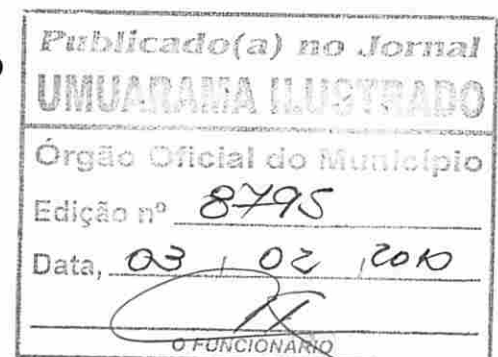 Publicado(a) no Jornal
UMUARAMA ILUSTRADO
Órgão Oficial do Município
Edição nº 8795
Data, 03 / 02 / 2010
O FUNCIONÁRIO